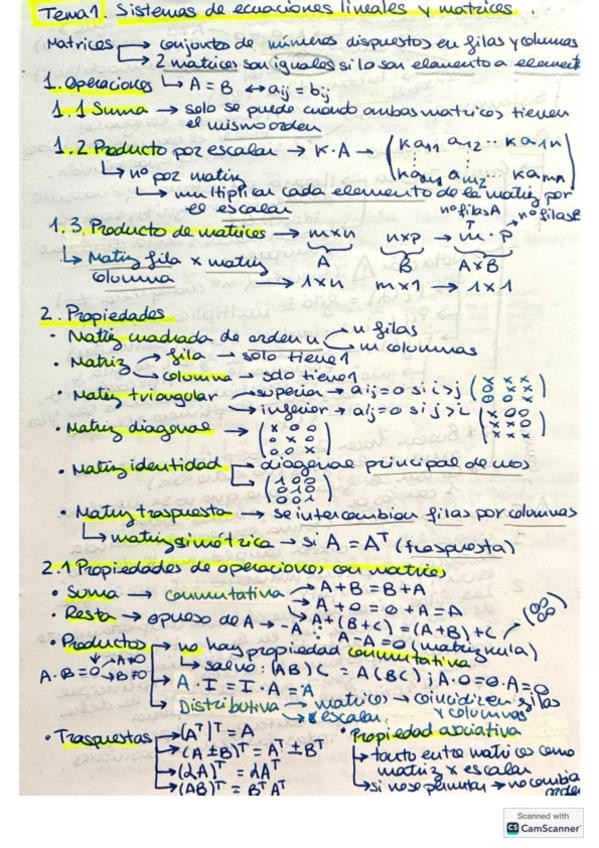 Tema 1. Sistemas de ecuaciones lineales y matrices.
Matrices → conjunto de números dispuestos en filas y columnas
→ 2 matrices son iguales si lo son elemento a elemento
1. Operaciones ↳ A = B ↔ aij = bij
1.1 Suma → solo se puede cuando ambas matrices tienen
el mismo orden
1.2 Producto por escalar → K·A → (Ka11 a12 ... Ka1n
↳ nº por matriz Kam1 am2 ... Kamn)
↳ multiplicar cada elemento de la matriz por
el escalar
nº filas A nº filas B
1.3. Producto de matrices → m×n n×p → m·p
↳ Matriz fila × matriz A B A×B
columna → 1×n m×1 → 1×1
2. Propiedades
• Matriz cuadrada de orden n n filas
m columnas
• Matriz → fila → solo tiene 1
→ columna → solo tiene 1
• Matriz triangular → superior → aij = 0 si i>j (0xx xxx 00x)
→ inferior → aij = 0 si j>i (x00 xx0 xxx)
• Matriz diagonal → (x00 0x0 00x)
• Matriz identidad → diagonal principal de unos
(100 010 001)
• Matriz traspuesta → se intercambian filas por columnas
↳ matriz simétrica → si A = Aᵀ (traspuesta)
2.1 Propiedades de operaciones con matrices
• Suma → conmutativa → A+B = B+A
→ A+0 = 0+A = A
• Resta → opueso de A → -A → A+(B+C) = (A+B)+C
A-A = 0 (matriz nula) (00 00)
• Productos → no hay propiedad conmutativa
A·B = 0 A≠0 B≠0 ↳ salvo: (AB)C = A(BC); A·0 = 0·A = 0
→ A·I = I·A = A
→ Distributiva → matrices → coincidir en filas
→ escalar. y columnas
• Traspuestas → (Aᵀ)ᵀ = A
→ (A±B)ᵀ = Aᵀ±Bᵀ
→ (λA)ᵀ = λAᵀ
→ (AB)ᵀ = BᵀAᵀ
• Propiedad asociativa
→ tanto entre matrices como
matriz × escalar
→ si no se permutan → no cambia
orden
Scanned with
CS CamScanner